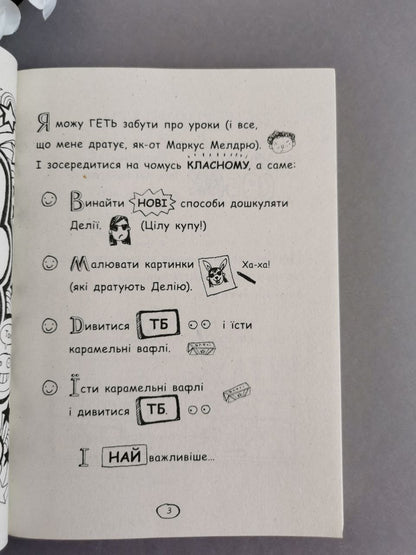 Я можу ГЕТЬ забути про уроки (і все,
що мене дратує, як-от Маркус Мелдрю).
І зосередитися на чомусь КЛАСНОМУ, а саме:
Винайти НОВІ способи дошкуляти
Делії. (Цілу купу!)
Малювати картинки Ха-ха!
(які дратують Делію).
Дивитися ТБ і їсти
карамельні вафлі.
Їсти карамельні вафлі
і дивитися ТБ.
І НАЙважливіше...
3